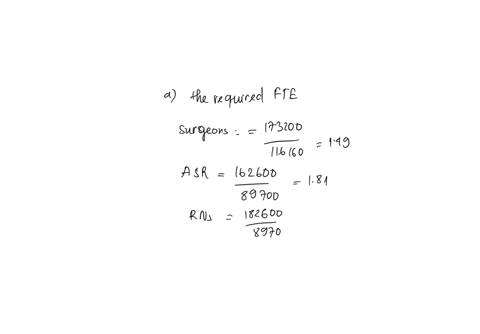 a) the required FTE
Surgeons := 173200 / 116160 = 1.49
ASR = 162600 / 89700 = 1.81
RNs = 182600 / 8970